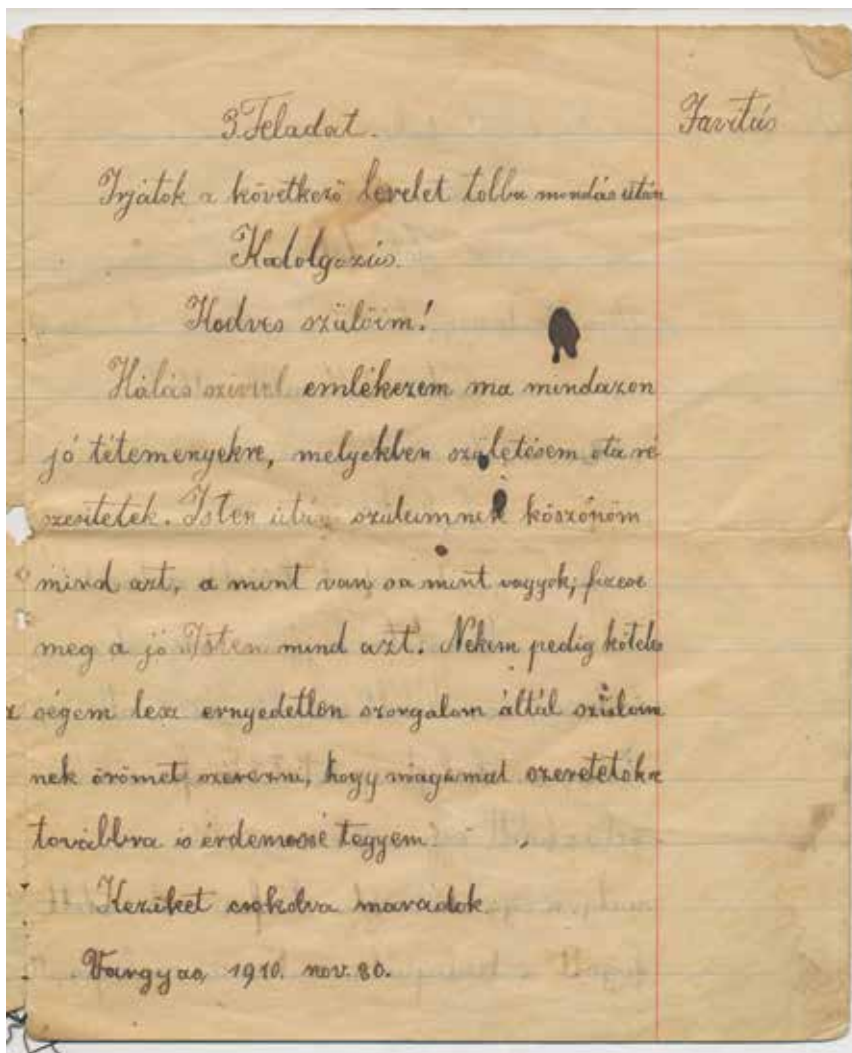 3 Feladat.
Javitás
Irjátok a következő levelet tollba mondás után
Kidolgozás.
Kedves szülőim!
Hálás szivvel emlékezem ma mindazon
jó téteményekre, melyekben születésem óta ré
szesitetek. Isten után szüleimnek köszönöm
mind azt, a mint van sa mint vagyok; fizesse
meg a jó Isten mind azt. Nekem pedig köteles
ségem lesz ernyedetlen szorgalom által szüleim
nek örömet szerezni, hogy magamat szeretetökre
továbbra is érdemessé tegyem.
Kezüket csokolva maradok.
Vargyas, 1910. nov. 30.